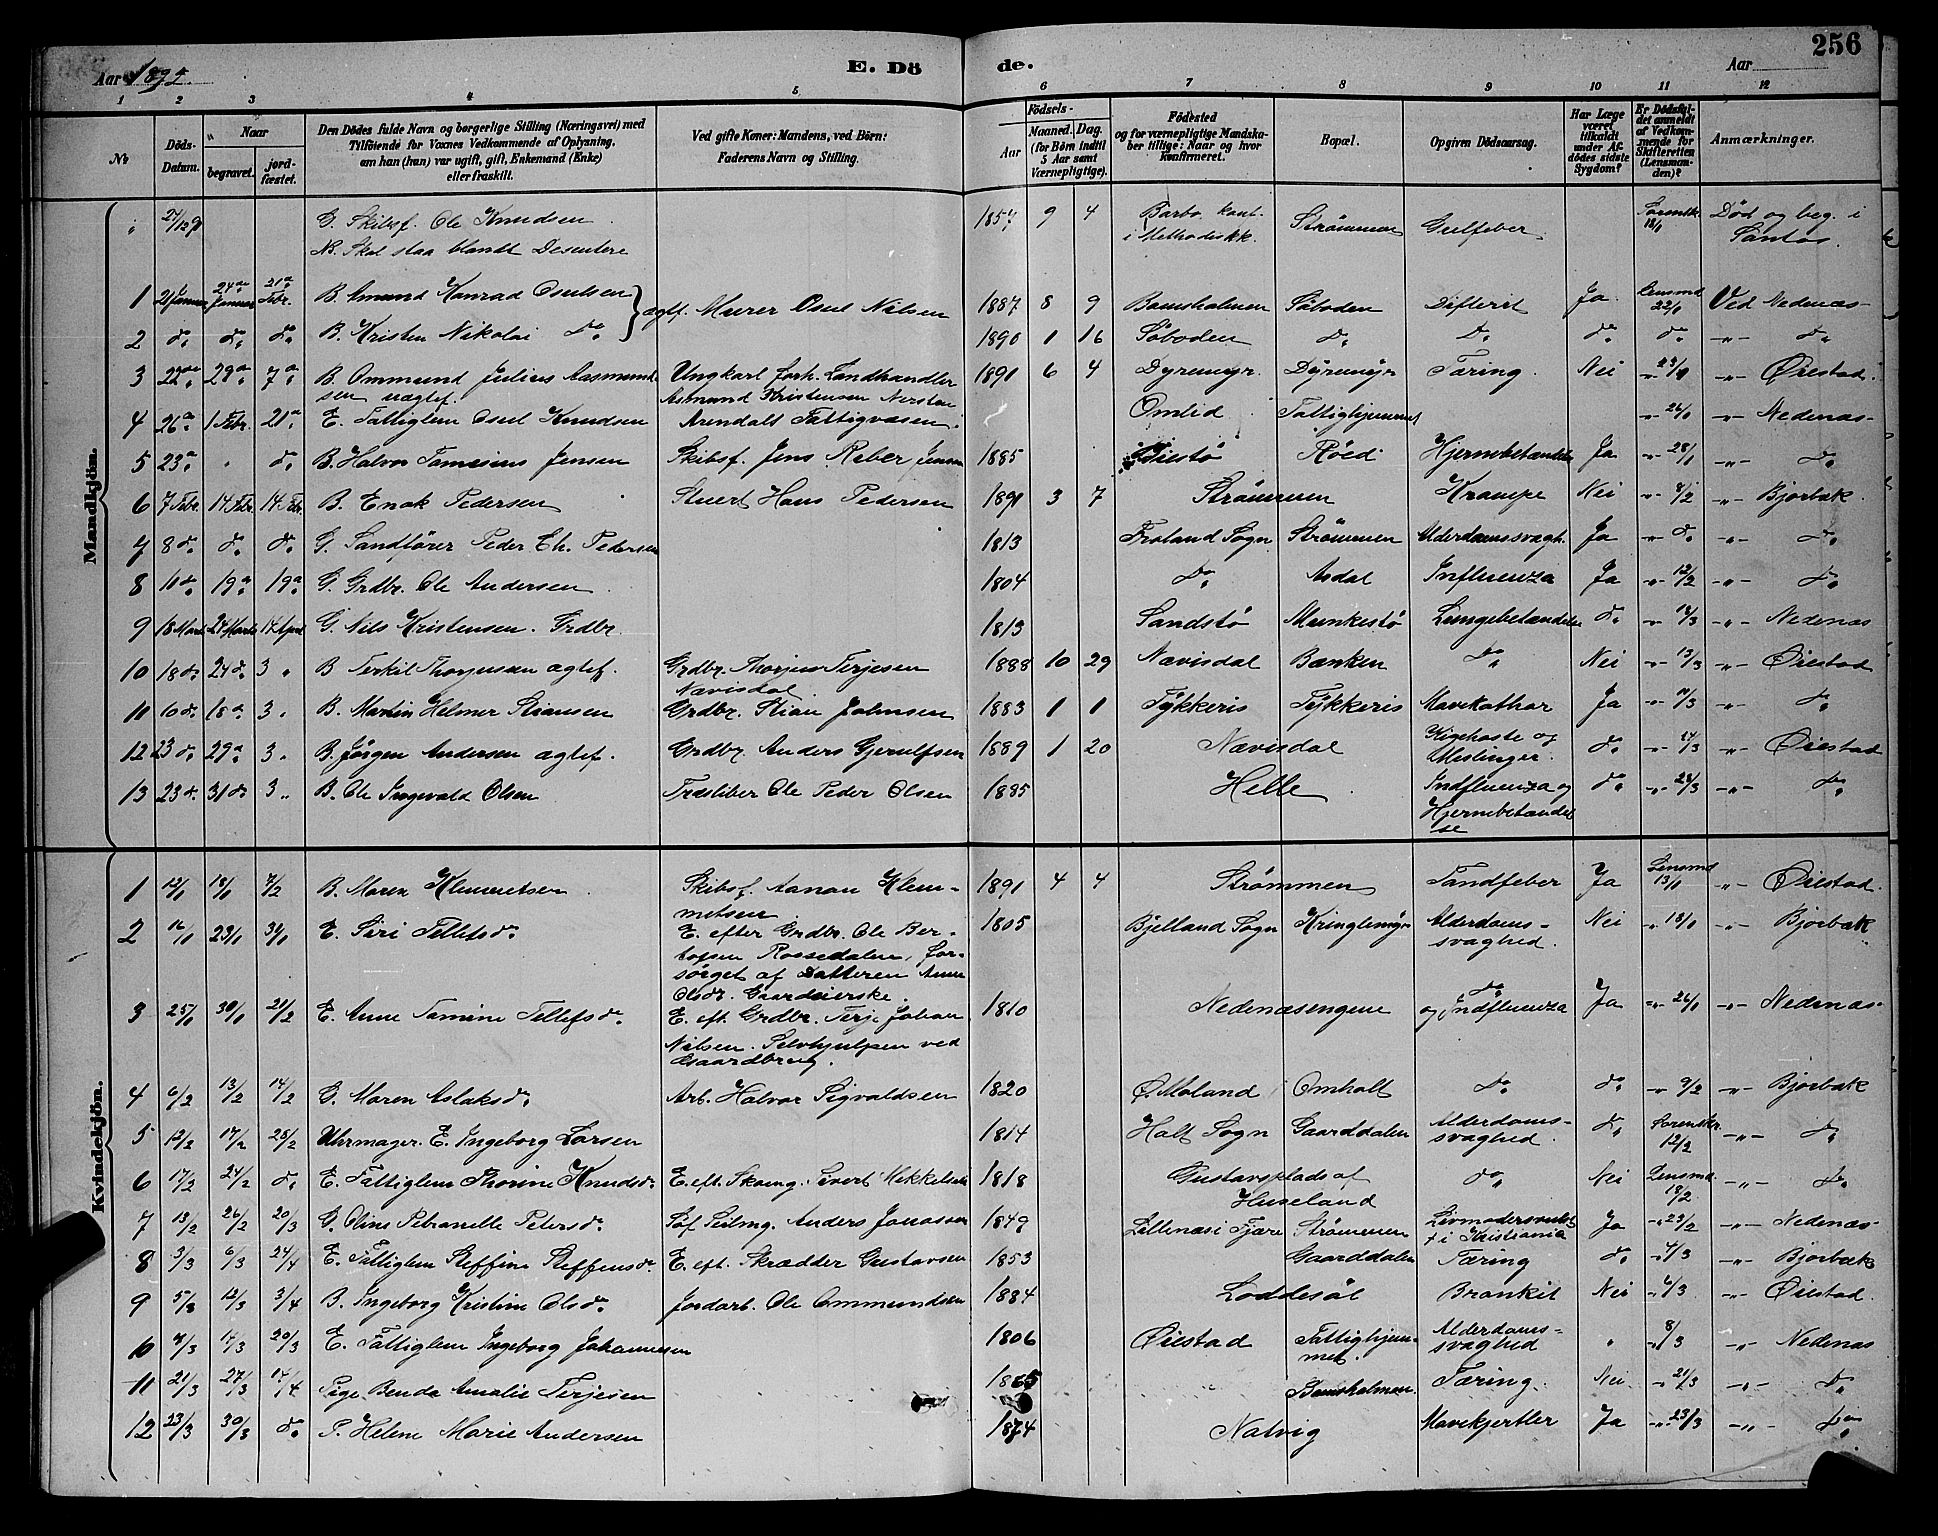 256
Aar 1892. E. Dö de. Aar
1 2 3 4 5 6 7 8 9 10 11 12
No Döds-Datum. Naar begravet. jord-fæstet. Den Dödes fulde Navn og borgerlige Stilling (Næringsvei) med Tilföiende for Voxnes Vedkommende af Oplysning, om han (hun) var ugift, gift, Enkemand (Enke) eller fraskilt. Ved gifte Koner: Mandens, ved Börn: Faderens Navn og Stilling. Födsels- Aar Maaned. Dag. (for Börn indtil 5 Aar samt Værnepligtige). Födested og for værnepligtige Mandskaber tillige: Naar og hvor konfirmeret. Bopæl. Opgiven Dödsaarsag. Har Læge været tilkaldt under Afdödes sidste Sygdom? Er Dödsfaldet anmeldt af Vedkommende for Skifteretten (Lensmanden)? Anmærkninger.
Mandkjön.
G. Skibsf. Ole Knudsen 1857 9 4 Barbo, konf. i Methodistk. Strömmen Gulfeber Sorenskr. Död og beg. i Santos.
NB. Skal staa blandt Desentere
1 21 Januar 24de Januar 21de Febr. B. Amund Konrad Oselsen ægtf. Murer Osul Nilsen 1887 8 9 Bomsholmen Söboden Difterit Ja Lensmd 22/1 Ved Nedenæs
2 do do do B. Kristen Nikolai Do 1890 1 16 Söboden Do Do do do -"- do
3 22de 29de 7de B. Ommund Julius Aasmundsen uægtef. Ungkarl forh. Landhandler Asmund Kristensen Nersten 1891 6 4 Dyremyr Dyremyr Tæring Nei -"- -"- Öiestad
4 26de 1 Febr. 21de E. Fattiglem Osul Knudsen Arendals Fattigvæsen. Omlid Fattighjemmet -"- 26/1 -"- Nedenæs
5 23de " do B. Halvor Tomesius Jensen Skibsf. Jens Reber Jensen 1885 Biestö Röed Hjernebetændelse Ja -"- 28/1 -"- do
6 7 Febr. 14 Febr. 14 Febr. B. Enok Pedersen Stuert Hans Pedersen 1891 3 7 Strömmen Krampe Nei -"- 8/2 -"- Bjorbæk
7 8 do do do G. Sandförer Peder Chr. Pedersen 1813 Froland Sogn Strömmen Alderdomssvagh. Ja -"- do -"- do
8 11 do 19de 19de G. Grdbr. Ole Andersen 1804 do Asdal Influenza Ja -"- 12/2 -"- do
9 18 Marts 24 Marts 14 April G. Nils Kristensen. Grdbr. 1813 Sandstö Munkestö Lungebetændelse do -"- 18/3 -"- Nedenæs
10 18 do 24 do 3 " B Terkil Thorjussen ægtef. Grdbr. Thorjus Terjesen Nævisdal 1888 10 29 Nævisdal Bænken do Nei -"- 13/3 -"- Öiestad
11 10 do 18de 3 " B. Martin Helmer Stiansen Grdbr. Stian Johnsen 1883 1 1 Tykkeris Tykkeris Mavekathar Ja -"- 11/3 -"- do
12 23 do 29de 3 " B. Jörgen Andersen ægtef. Grdbr. Anders Gjerulfsen 1889 1 20 Nævisdal Kighoste og Meslinger. do -"- 24/3 -"- Öiestad
13 23 do 31 do 3 " B. Ole Ingevald Olsen Træsliber Ole Peder Olsen 1885 Helle Indfluenza og Hjernebetændelse do -"- 28/3 -"- do
Kvindekjön.
1 12/1 18/1 7/2 B. Maren Klemmetsen Skibsf. Aanon Klemmetsen 1891 4 4 Strömmen Tandfeber Ja Lensmd 13/1 -"- Öiestad.
2 16/1 23/1 31/1 E. Siri Tellefsdr E. efter Grdbr. Ole Bertofsen Rossedalen, forsörget af Datteren Anne Olsdr. Gaardeierske. 1805 Bjelland Sogn Kringlemyr Alderdomssvaghed. Nei -"- 18/1 -"- Bjorbæk
3 25/1 30/1 21/2 E. Anne Tomine Tellefsdr E. eft. Grdbr. Terje Johan Nilsen. Selvhjulpen ved Gaardbrug. 1810 Nedenæsengene do og Indfluenza Ja -"- 26/1 -"- Nedenæs
4 6/2 13/2 14/2 G. Maren Aslaksdr Arb. Halvor Sigvaldsen 1820 Ö. Moland Omholt Do do -"- 9/2 -"- Bjorbæk
5 12/2 17/2 25/2 Uhrmager. E. Ingeborg Larsen 1814 Holt Sogn Gaarddalen Alderdomssvaghed. do Sorenskr. 12/2 -"- do
6 17/2 24/2 do E. Fattiglem Thorine Knudsdr E. eft. Skomg. Sivert Mikkelsen 1818 Gustavsplads af Huseland do Nei Lensmd. 18/2 -"- do
7 13/2 26/2 20/3 G. Oline Petranelle Petersdr Söf. Seilmg. Anders Jonassen 1849 Lillenæs i Fjære Strömmen Livmodersvulst + i Kristiania Ja -"- 23/2 -"- Nedenæs
8 3/3 6/3 24/4 E. Fattiglem Steffine Steffensdr E. eft. Skrædder Gustavsen 1853 Gaarddalen Tæring do -"- 4/3 -"- Bjorbæk
9 5/3 12/3 3/4 B. Ingeborg Kristine Olsdr Jordarb. Ole Ommundsen 1884 Loddesöl Bronkit Nei -"- 6/3 -"- Öiestad
10 7/3 14/3 20/3 E. Fattiglem Ingeborg Johannesen 1806 Öiestad Fattighjemmet. Alderdomssvaghed " -"- 8/3 -"- Nedenæs
11 21/3 27/3 14/4 Pige Benda Amalie Terjesen 1865 Bomsholmen. Tæring. Nei -"- 21/3 -"- do
12 23/3 30/3 do P. Helene Marie Andersen 1874 Natvig Mavekjertler Ja -"- 23/3 -"- do